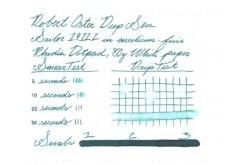 Robert Oster Deep Sea
Sailor 1911 in medium-fine
Rhodia Dotpad, 80g White paper
Smear Test Drip Test
5 seconds
10 seconds
20 seconds
30 seconds
Swab 1 2 3